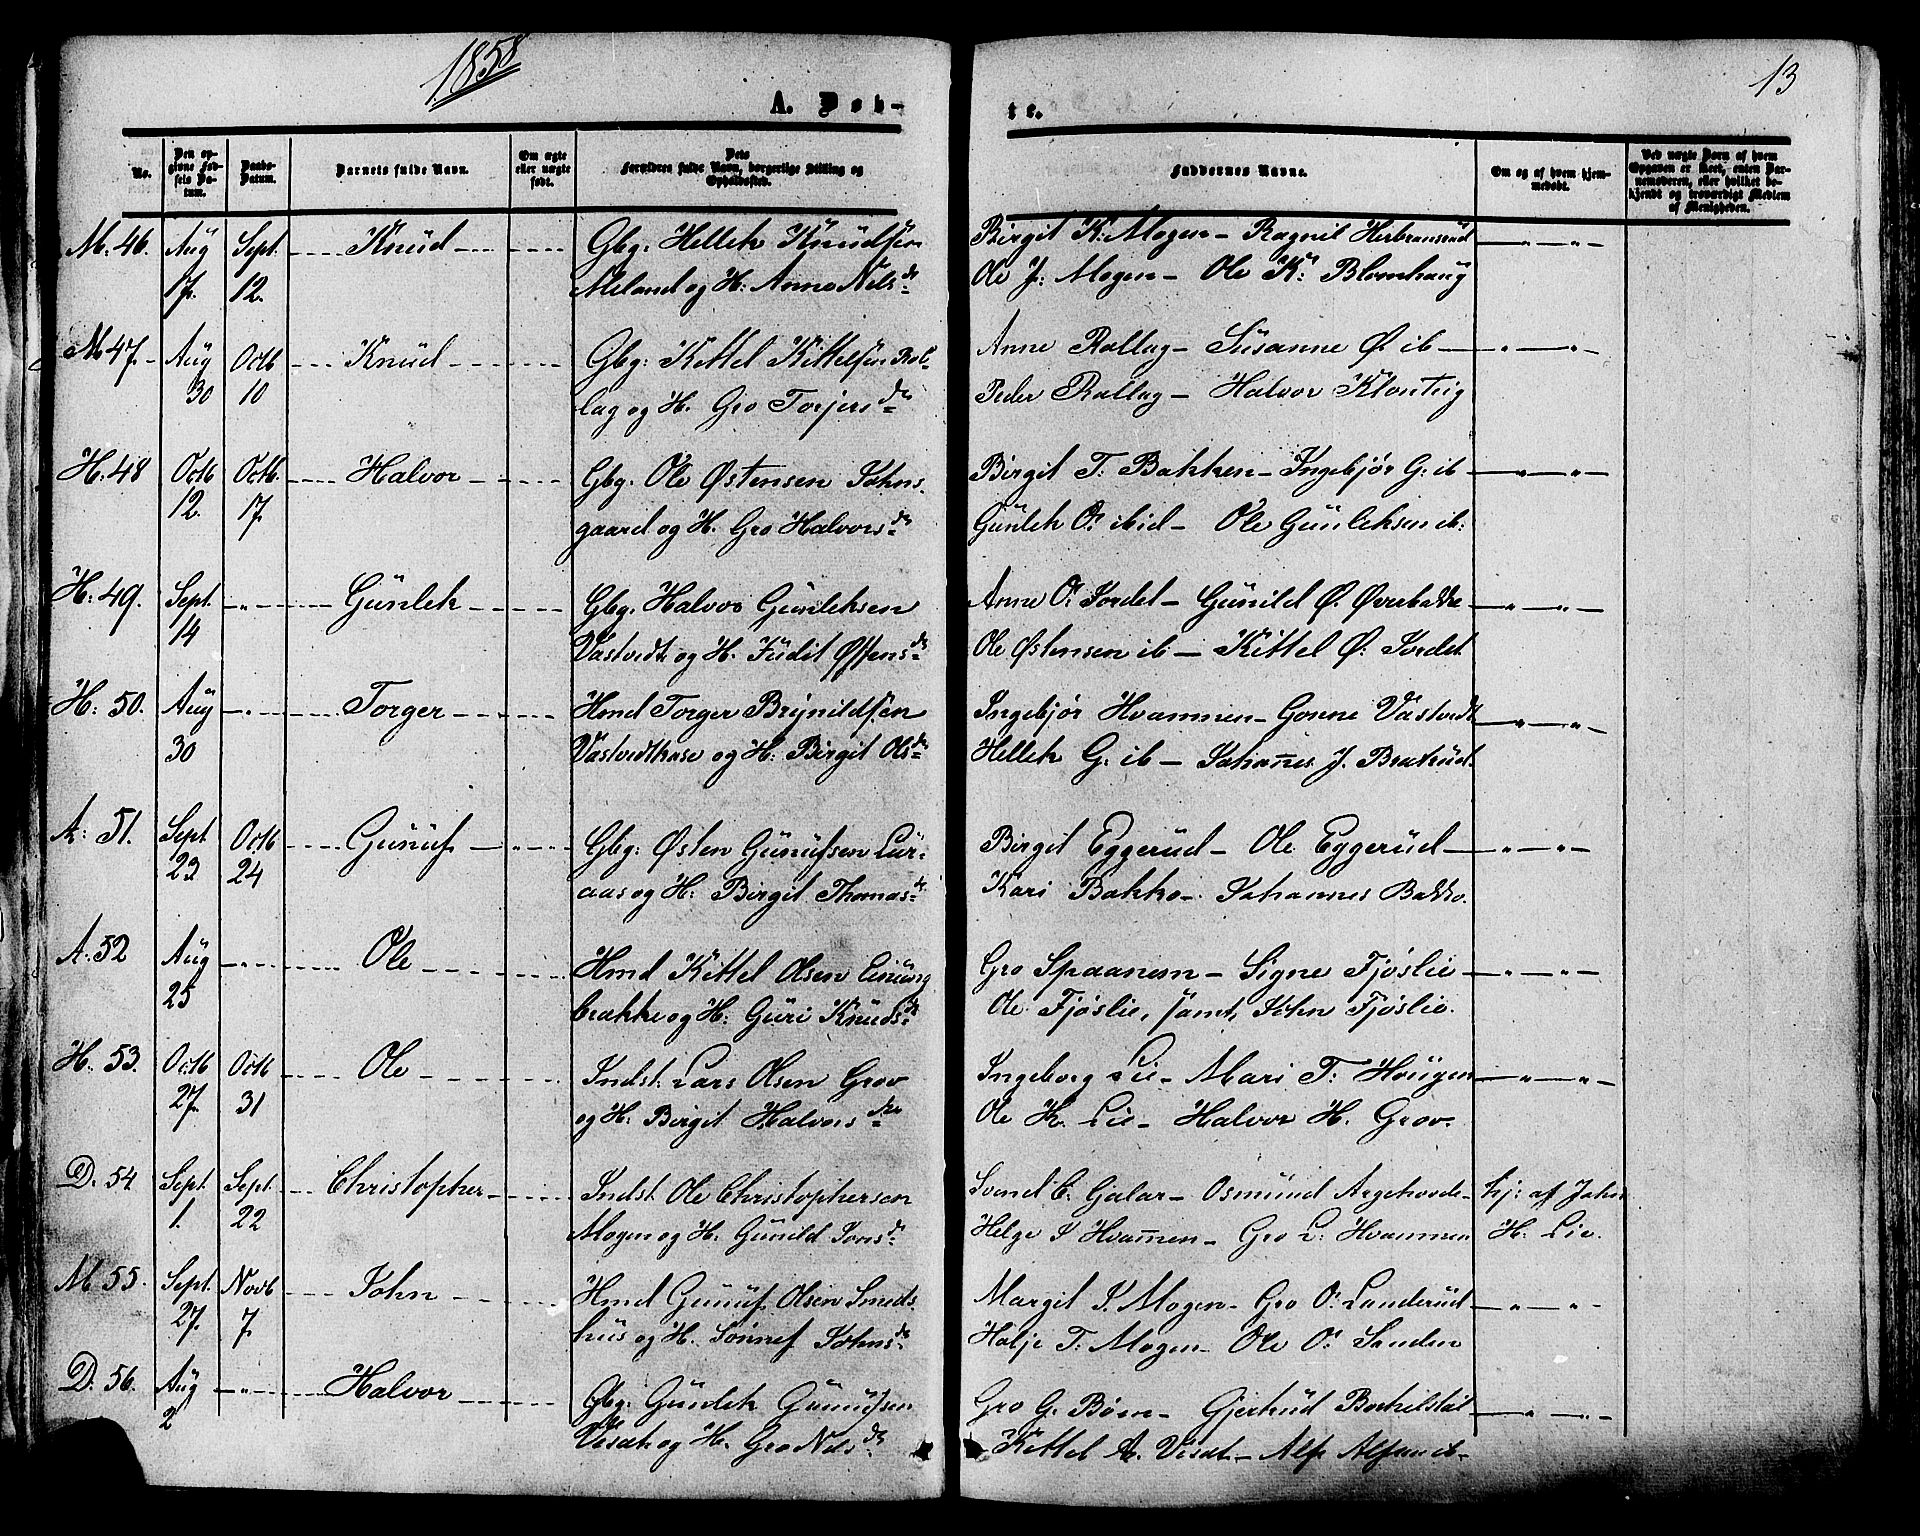 1858
13
A. Døb-
te.
No.
Den op-
givne Fød-
sels Da-
tum.
Daabs-
Datum.
Barnets fulde Navn.
Om ægte
eller uægte
født.
Dets
Forældres fulde Navn, borgerlige Stilling og
Opholdssted.
Faddernes Navne.
Om og af hvem hjem-
medøbt.
Ved uægte Børn af hvem
Opgaven er skeet, enten Bar-
nemoderen, eller hvilket be-
kjendt og troværdigt Medlem
af Menigheden.
M: 46. Aug Sept. Knud Gbg: Hellek Knudsen Birgit K: Mogen - Ragnil Herbransrud
17. 12. Meland og H: Anne Nilsdr Ole J: Mogen - Ole K: Blomhaug
M 47. Aug Octb Knud Gbg: Kittel Kittelsen Rol- Anne Rollag - Susanne Ø. ib
30 10 lag og H. Gro Torjersdr Peder Rollag - Halvor
H: 48 Octb Octb. Halvor Gbg. Ole Østensen Johns- Birgit T: Bakken - Ingebjør G: ib
12. 17. gaard og H. Gro Halvorsdr Gunlek O: ibid - Ole Gunleksen ib:
H: 49. Sept. Gunlek Gbg. Halvor Gunleksen Anne O: Jordet - Gunild Ø.
14 Vastvedt og H. Judit Østensdr Ole Østensen ib - Kittel Ø: Jordet
H: 50. Aug Torger Hmd Torger Brynildsen Ingebjør Hvammen - Gonne Vastvedt
30 Vastvedt og H: Birgit Olsdr Hellek G: ib - Johannes J. Bratrud
A: 51. Sept Octb Gunuf Gbg: Østen Gunufsen Lur- Birgit Eggerud - Ole Eggerud
23 24 aas og H: Birgit Thomasdr Kari Bakko - Johannes Bakko.
A: 52 Aug Ole Hmd Kittel Olsen Gro Spaanem - Signe Fjøslie
25 brække og H: Guri Knudsdr Ole Fjøslie, samt, John Fjøslie.
H: 53. Octb Octb Ole Indst. Lars Olsen Grov Ingeborg Lie - Mari T: Hougen
27. 31 og H. Birgit Halvorsdr Ole K. Lie - Halvor H. Grov
D. 54. Sept. Sept. Christopher Indst Ole Christophersen Svend C. Galar - Osmund Argehovde hj: af John
1. 22 Mogen og H. Gunild Jonsdr Helge S Hvammen - Gro L: Hvammen H. Lie.
M. 55. Sept. Novb John Hmd Gunuf Olsen Smeds- Margit S. Mogen - Gro O: Landerud
27. 7. hus og H. Sønnef Johnsdr Halje T. Mogen - Ole O: Sanden
D. 56. Aug Halvor Gbg: Gunlek Gunufsen Gro G. Bøen - Gjertrud
2 og H. Gro Nilsdr Kittel A. - Alf